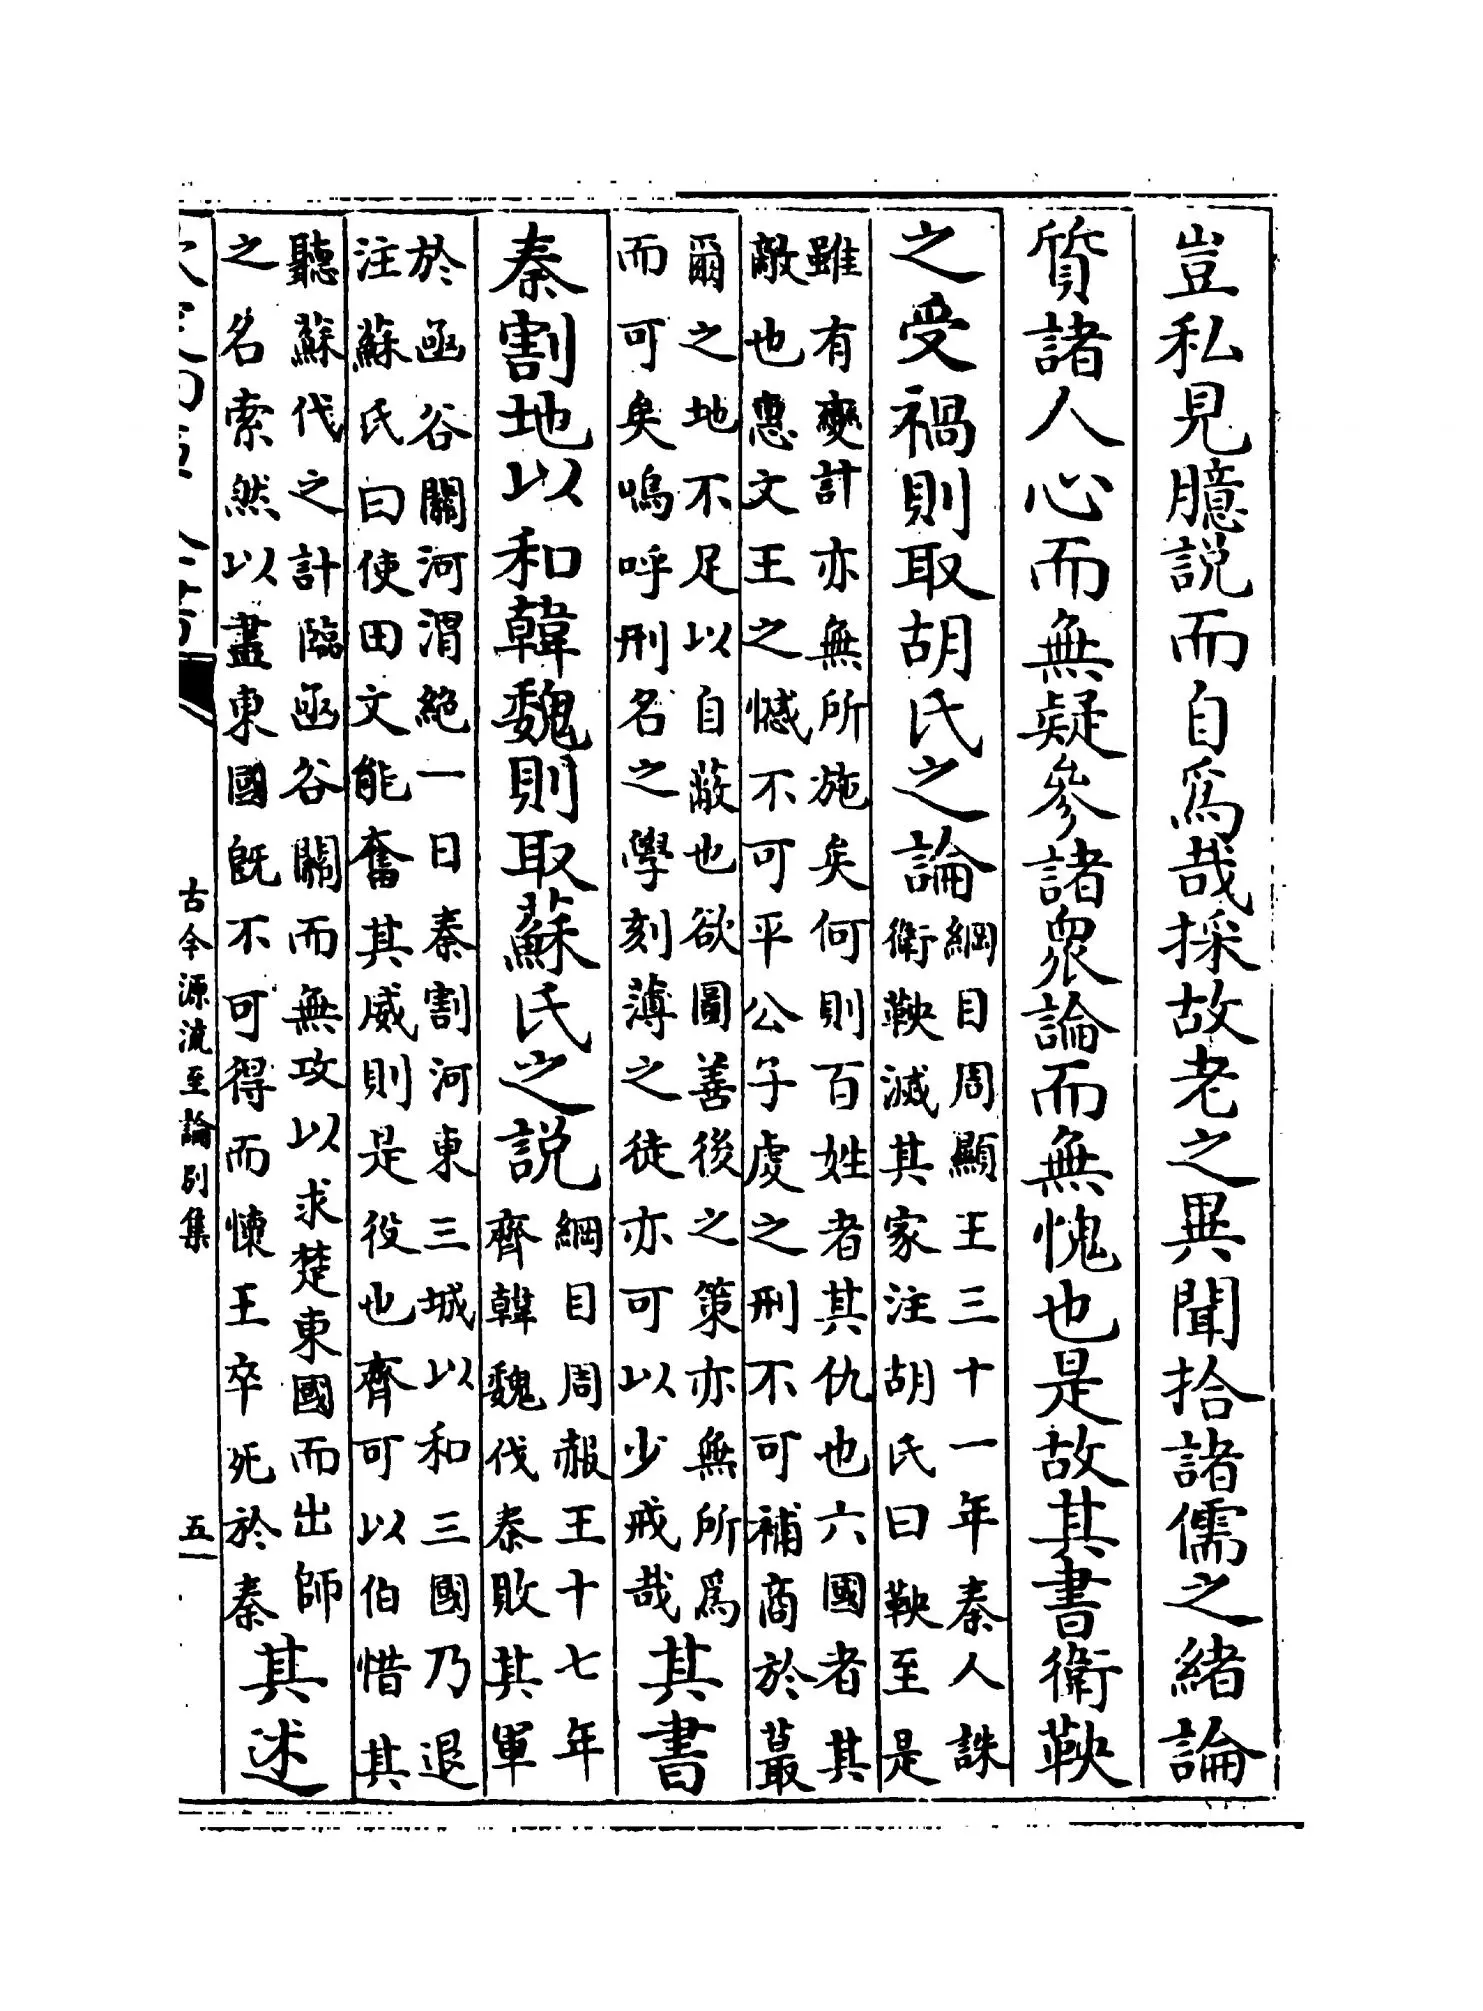 豈私見臆說而自爲哉採故老之異聞拾諸儒之緒論
質諸人心而無疑參諸衆論而無愧也是故其書衛鞅
之受禍則取胡氏之論
綱目周顯王三十一年秦人誅
衛鞅滅其家注胡氏曰鞅至是
雖有變計亦無所施矣何則百姓者其仇也六國者其
敵也惠文王之憾不可平公子虔之刑不可補商於蕞
爾之地不足以自蔽也欲圖善後之策亦無所爲
而可矣嗚呼刑名之學刻薄之徒亦可以少戒哉
其書
秦割地以和韓魏則取蘇氏之說
綱目周赧王十七年
齊韓魏伐秦敗其軍
於函谷關河渭絶一日秦割河東三城以和三國乃退
注蘇氏曰使田文能奮其威則是役也齊可以伯惜其
聽蘇代之計臨函谷關而無攻以求楚東國而出師
之名索然以盡東國旣不可得而懷王卒死於秦
其述
古今源流至論别集
五